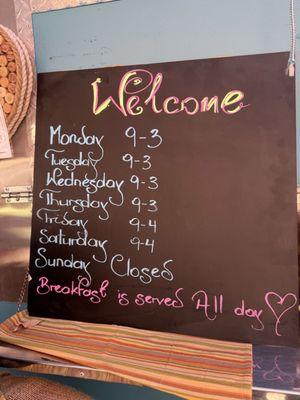 Welcome
Monday 9-3
Tuesday 9-3
Wednesday 9-3
Thursday 9-3
Friday 9-4
Saturday 9-4
Sunday Closed
Breakfast is served All day